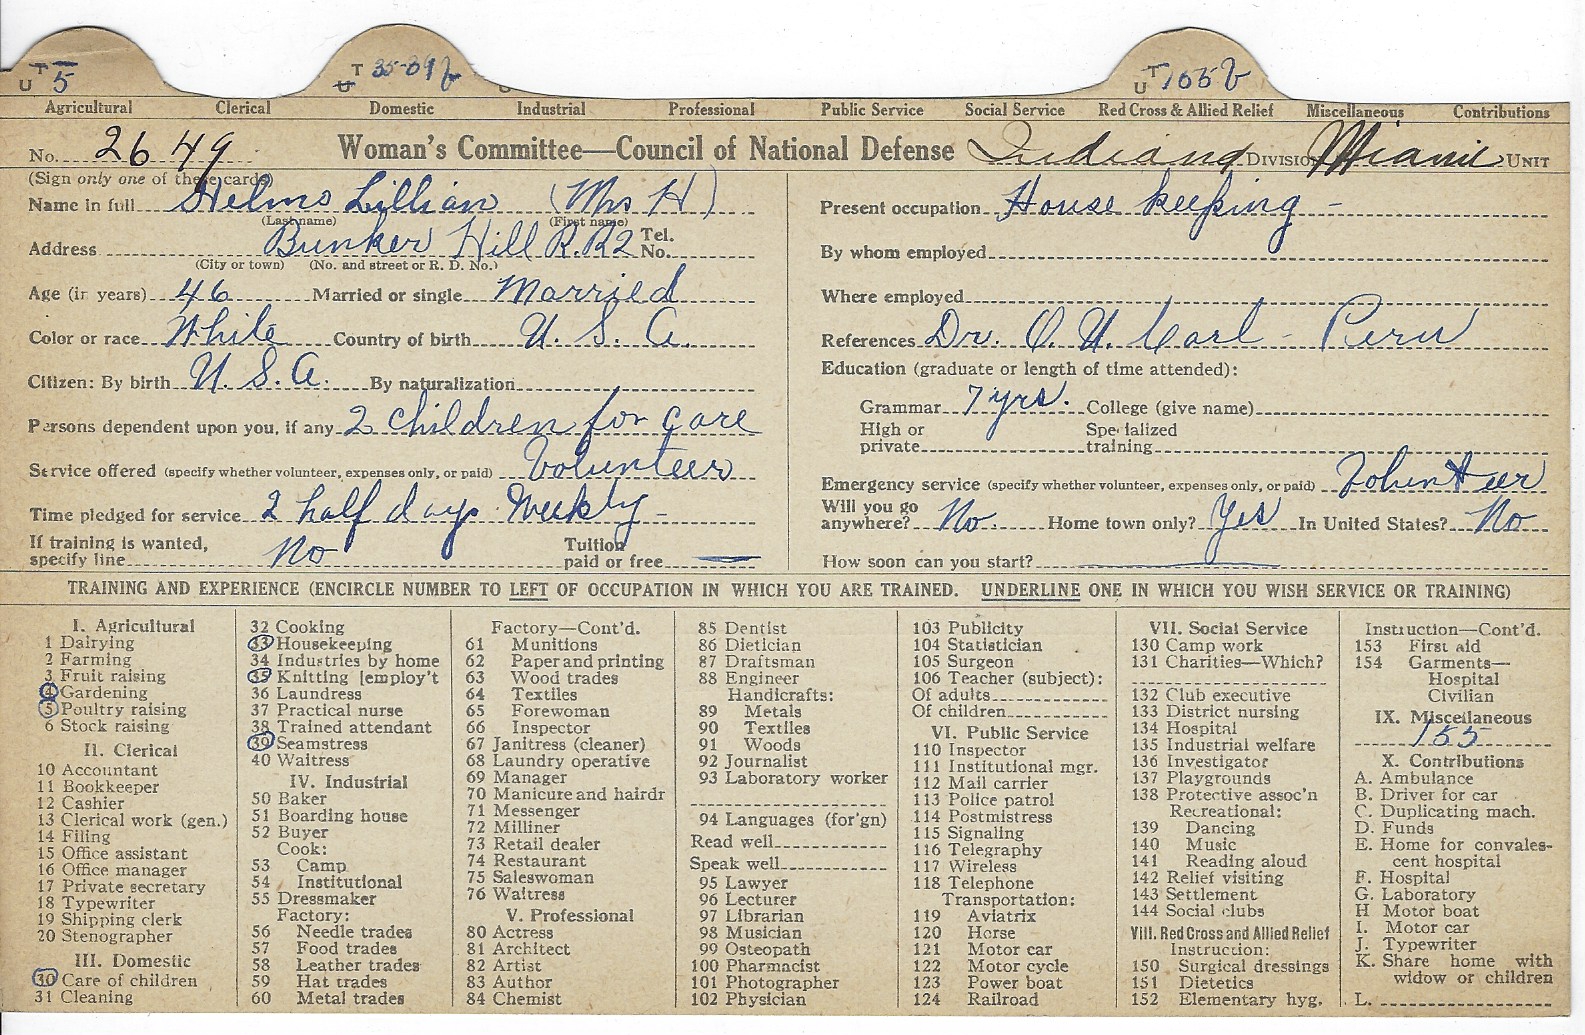 U T 5
U T 35-39
U T 155
Agricultural Clerical Domestic Industrial Professional Public Service Social Service Red Cross & Allied Relief Miscellaneous Contributions
No. 2649 Woman's Committee—Council of National Defense Indiana DIVISION Miami UNIT
(Sign only one of these cards)
Name in full Helms Lillian (Mrs H)
(Last name) (First name)
Address Bunker Hill R.R2 Tel. No.
(City or town) (No. and street or R. D. No.)
Age (in years) 46 Married or single Married
Color or race White Country of birth U. S. A.
Citizen: By birth U. S. A. By naturalization
Persons dependent upon you, if any 2 children for care
Service offered (specify whether volunteer, expenses only, or paid) Volunteer
Time pledged for service 2 half days Weekly -
If training is wanted, specify line No Tuition paid or free —
Present occupation House keeping -
By whom employed
Where employed
References Dr. O. U. Carl - Peru
Education (graduate or length of time attended):
Grammar 7 yrs. College (give name)
High or private Specialized training
Emergency service (specify whether volunteer, expenses only, or paid) Volunteer
Will you go anywhere? No Home town only? Yes In United States? No
How soon can you start?
TRAINING AND EXPERIENCE (ENCIRCLE NUMBER TO LEFT OF OCCUPATION IN WHICH YOU ARE TRAINED. UNDERLINE ONE IN WHICH YOU WISH SERVICE OR TRAINING)
I. Agricultural
1 Dairying
2 Farming
3 Fruit raising
4 Gardening
5 Poultry raising
6 Stock raising
II. Clerical
10 Accountant
11 Bookkeeper
12 Cashier
13 Clerical work (gen.)
14 Filing
15 Office assistant
16 Office manager
17 Private secretary
18 Typewriter
19 Shipping clerk
20 Stenographer
III. Domestic
30 Care of children
31 Cleaning
32 Cooking
33 Housekeeping
34 Industries by home
35 Knitting [employ't
36 Laundress
37 Practical nurse
38 Trained attendant
39 Seamstress
40 Waitress
IV. Industrial
50 Baker
51 Boarding house
52 Buyer
Cook:
53 Camp
54 Institutional
55 Dressmaker
Factory:
56 Needle trades
57 Food trades
58 Leather trades
59 Hat trades
60 Metal trades
Factory—Cont'd.
61 Munitions
62 Paper and printing
63 Wood trades
64 Textiles
65 Forewoman
66 Inspector
67 Janitress (cleaner)
68 Laundry operative
69 Manager
70 Manicure and hairdr
71 Messenger
72 Milliner
73 Retail dealer
74 Restaurant
75 Saleswoman
76 Waitress
V. Professional
80 Actress
81 Architect
82 Artist
83 Author
84 Chemist
85 Dentist
86 Dietician
87 Draftsman
88 Engineer
Handicrafts:
89 Metals
90 Textiles
91 Woods
92 Journalist
93 Laboratory worker
94 Languages (for'gn)
Read well
Speak well
95 Lawyer
96 Lecturer
97 Librarian
98 Musician
99 Osteopath
100 Pharmacist
101 Photographer
102 Physician
103 Publicity
104 Statistician
105 Surgeon
106 Teacher (subject):
Of adults
Of children
VI. Public Service
110 Inspector
111 Institutional mgr.
112 Mail carrier
113 Police patrol
114 Postmistress
115 Signaling
116 Telegraphy
117 Wireless
118 Telephone
Transportation:
119 Aviatrix
120 Horse
121 Motor car
122 Motor cycle
123 Power boat
124 Railroad
VII. Social Service
130 Camp work
131 Charities—Which?
132 Club executive
133 District nursing
134 Hospital
135 Industrial welfare
136 Investigator
137 Playgrounds
138 Protective assoc'n
Recreational:
139 Dancing
140 Music
141 Reading aloud
142 Relief visiting
143 Settlement
144 Social clubs
VIII. Red Cross and Allied Relief
Instruction:
150 Surgical dressings
151 Dietetics
152 Elementary hyg.
Instruction—Cont'd.
153 First aid
154 Garments—
Hospital
Civilian
IX. Miscellaneous
155
X. Contributions
A. Ambulance
B. Driver for car
C. Duplicating mach.
D. Funds
E. Home for convales-
cent hospital
F. Hospital
G. Laboratory
H Motor boat
I. Motor car
J. Typewriter
K. Share home with
widow or children
L.